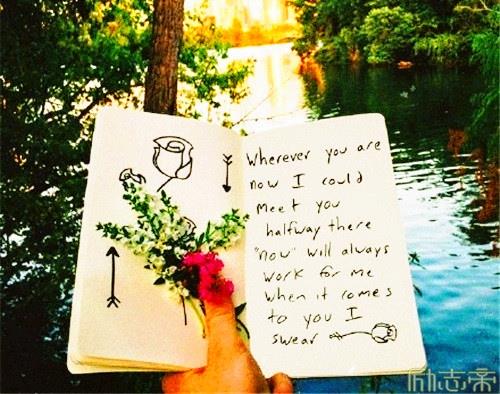 Wherever you are
now I could
meet you
halfway there
"now" will always
work for me
when it comes
to you I
swear
励志帝